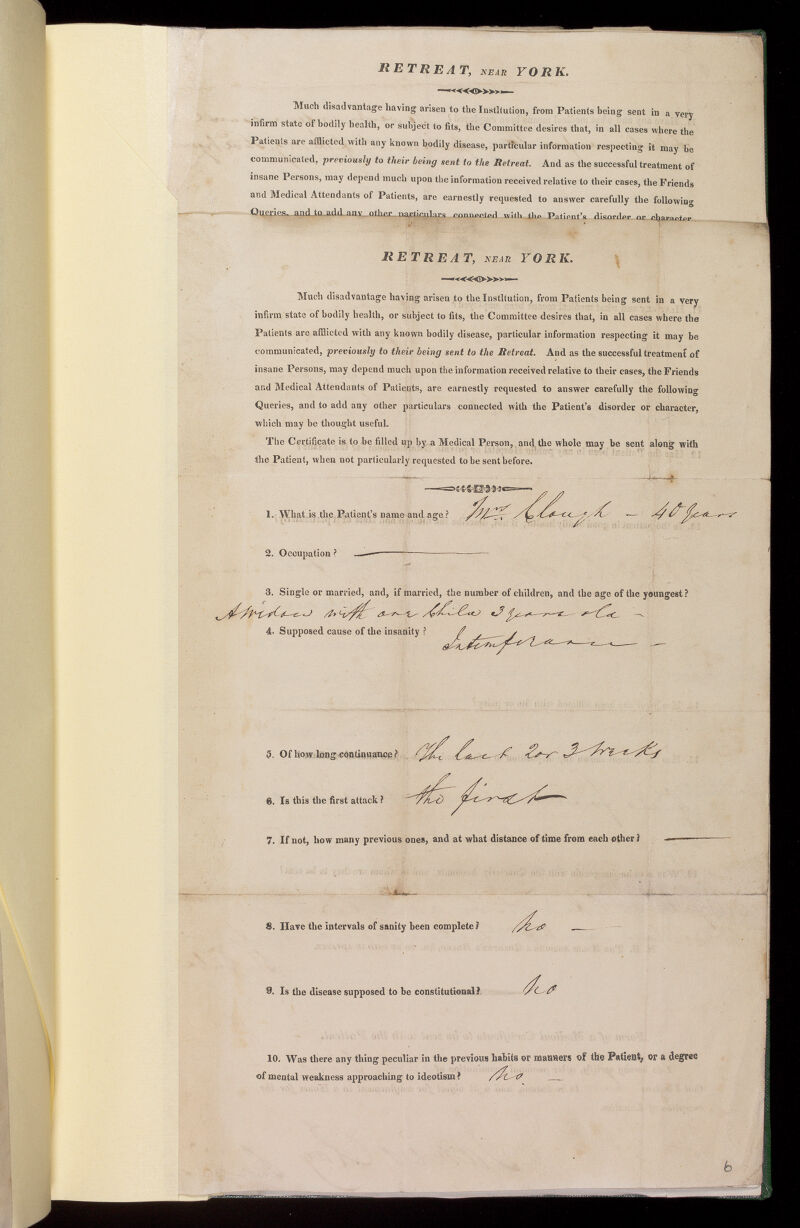 RETREAT, NEAR YORK.
Much disadvantage having arisen to the Institution, from Patients being sent in a very
infirm state of bodily health, or subject to fits, the Committee desires that, in all cases where the
Patients are afflicted with any known bodily disease, particular information respecting it may be
communicated, previously to their being sent to the Retreat. And as the successful treatment of
insane Persons, may depend much upon the information received relative to their cases, the Friends
and Medical Attendants of Patients, are earnestly requested to answer carefully the following
Queries, and to add any other particulars connected with the Patient's disorder or character
RETREAT, NEAR YORK.
Much disadvantage having arisen to the Institution, from Patients being sent in a very
infirm state of bodily health, or subject to fits, the Committee desires that, in all cases where the
Patients are afflicted with any known bodily disease, particular information respecting it may be
communicated, previously to their being sent to the Retreat. And as the successful treatment of
insane Persons, may depend much upon the information received relative to their cases, the Friends
and Medical Attendants of Patients, are earnestly requested to answer carefully the following
Queries, and to add any other particulars connected with the Patient's disorder or character,
which may be thought useful.
The Certificate is to be filled up by a Medical Person, and the whole may be sent along with
the Patient, when not particularly requested to be sent before.
1. What is the Patient's name and age? Mrs. Clough - 40 Years
2. Occupation?
3. Single or married, and, if married, the number of children, and the age of the youngest?
A Widow with one Child 3 years old -
4. Supposed cause of the insanity?
Intemperance -
5. Of how long continuance? The last 2 or 3 Weeks
6. Is this the first attack? the first
7. If not, how many previous ones, and at what distance of time from each other?
8. Have the intervals of sanity been complete? No -
9. Is the disease supposed to be constitutional? No
10. Was there any thing peculiar in the previous habits or manners of the Patient, or a degree
of mental weakness approaching to ideotism? No -
6